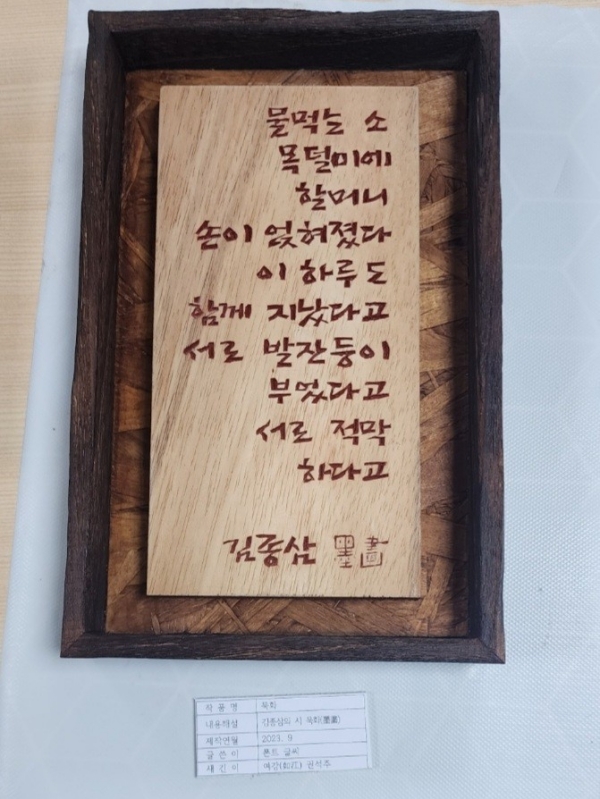 물먹는 소
목덜미에
할머니
손이 얹혀졌다
이 하루도
함께 지났다고
서로 발잔등이
부었다고
서로 적막
하다고
김종삼 墨畫
작 품 명 묵화
내용해설 김종삼의 시 묵화(墨畫)
제작연월 2023. 9
글 쓴 이 폰트 글씨
새 긴 이